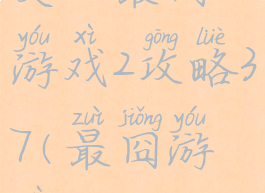 yóu xì gōng lüè
游戏2攻略3
zuì jiǒng yóu
7(最囧游